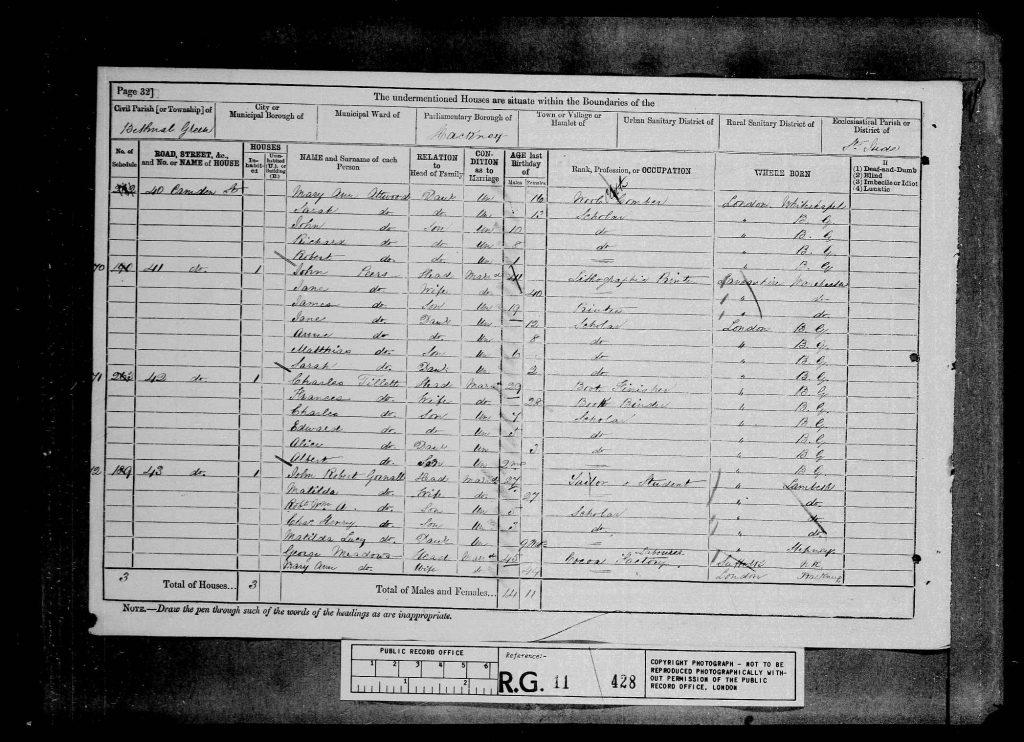 Page 32]
The undermentioned Houses are situate within the Boundaries of the
Civil Parish [or Township] of City or Municipal Borough of Municipal Ward of Parliamentary Borough of Town or Village or Hamlet of Urban Sanitary District of Rural Sanitary District of Ecclesiastical Parish or District of
Bethnal Green Hackney St. Jude
No. of Schedule ROAD, STREET, &c., and No. or NAME of HOUSE HOUSES Inhabited Uninhabited (U.), or Building (B.) NAME and Surname of each Person RELATION to Head of Family CONDITION as to Marriage AGE last Birthday of Males Females Rank, Profession, or OCCUPATION WHERE BORN If (1) Deaf-and-Dumb (2) Blind (3) Imbecile or Idiot (4) Lunatic
40 Camden St Mary Ann Attwood Daur Un 16 Comber London Whitechapel
Sarah do. do. Un 13 Scholar " B. G
John do. Son Un 10 do " B. G
Richard do. do. Un 8 do " B. G
Robert do. do. Un 1 " B. G
70 41 do. 1 John Head Mard 41 Lithographic Printer Lancashire Manchester
Jane do. Wife do. 40 " do
James do. Son Un 19 Printer " do.
Jane do. Daur Un 12 Scholar London B. G
Annie do. do. Un 8 do " B. G
Matthias do. Son Un do " B. G
Sarah do. Daur Un 2 do " B. G
71 42 do. 1 Charles Tillett Head Mard 29 Boot Finisher " B. G
Frances do. Wife do. 28 Book Binder " B. G.
Charles do. Son Un 7 Scholar " B. G
Edward do. do Un 5 do " B. G
Alice do. Daur Un 3 do " B. G
Albert do. Son Un 2 mo " B. G
72 43 do. 1 John Robert Head Mard 27 Tailor & Student " Lambeth
Matilda do. Wife do. 27 " do.
Robt Wm A. do. Son Un 5 Scholar " do
Chas Henry do. Son Un 3 do " do.
Matilda Lucy do. Daur Un 9 mo " Stepney
George Meadows Head Mard 45 Cocoa Factory Labourer Suffolk
Mary Ann do. Wife do London
3 Total of Houses... 3 Total of Males and Females... 14 11
NOTE.—Draw the pen through such of the words of the headings as are inappropriate.
PUBLIC RECORD OFFICE
1 2 3 4 5 6
1 2
Reference:-
R.G. 11 428
COPYRIGHT PHOTOGRAPH - NOT TO BE
REPRODUCED PHOTOGRAPHICALLY WITH-
OUT PERMISSION OF THE PUBLIC
RECORD OFFICE, LONDON